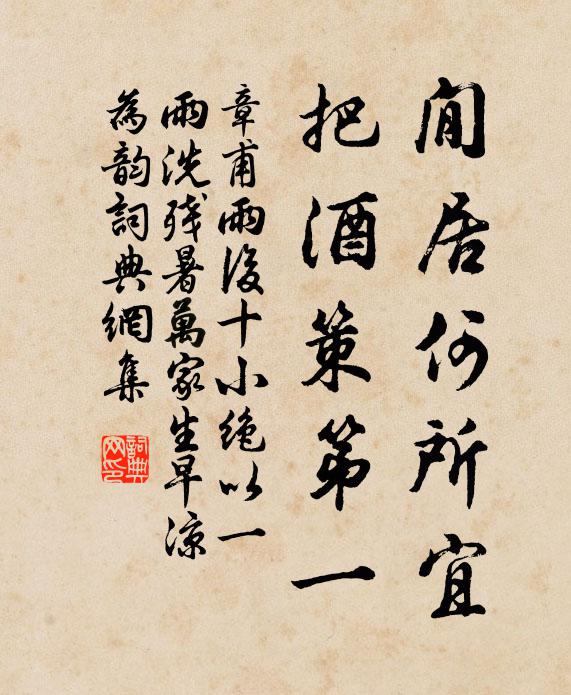 閒居何所宜
把酒策第一
章甫雨後十小絶以一
雨洗残暑萬家生早涼
為韵詞典網集
詞典网印